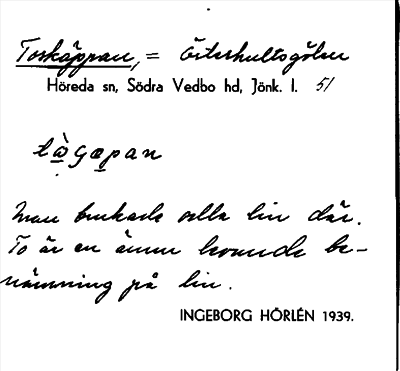 Toskäppan, = Österhultsgölen
Höreda sn, Södra Vedbo hd, Jönk. l. 51
Man brukade rella lin där.
To är en ännu levande be-
nämning på lin.
INGEBORG HÖRLÉN 1939.